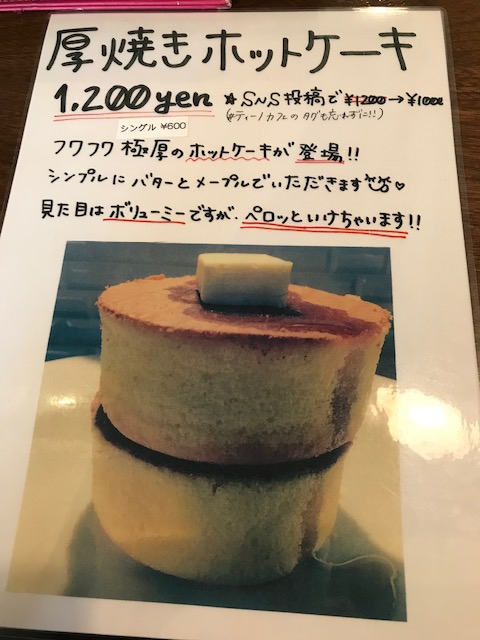 厚焼きホットケーキ
1,200yen ★SNS投稿で ¥1200→¥1000
(#ティーノカフェのタグも忘れずに!!)
シングル ¥600
フワフワ極厚のホットケーキが登場!!
シンプルにバターとメープルでいただきます♡
見た目はボリューミーですが、ペロッといけちゃいます!!